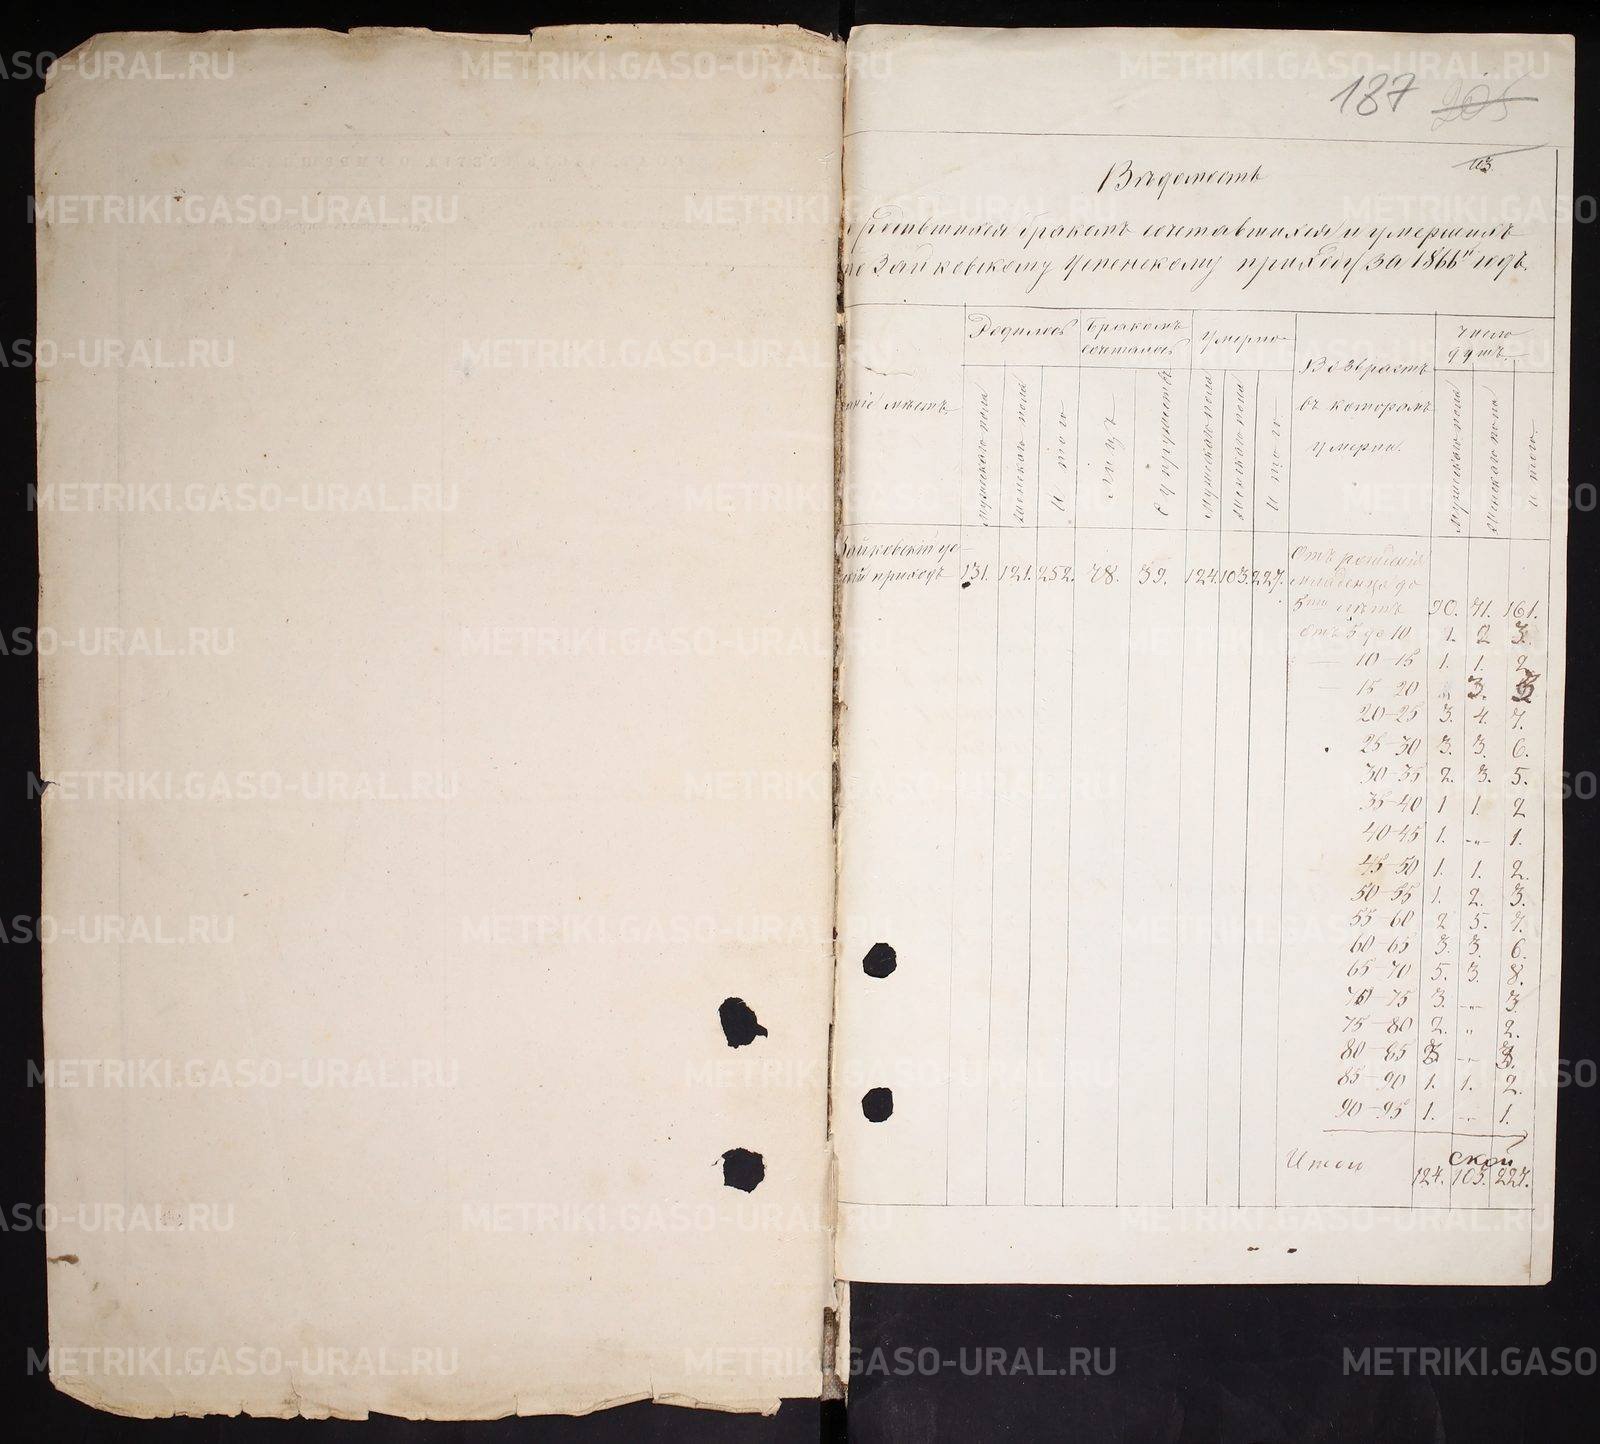 187 205
113
Вѣдомость
о родившихся бракомъ сочетавшихся и умершихъ
по Зайковскому Успенскому приходу за 1866й годъ.
Родилось Бракомъ сочеталось Умерло Возрастъ въ которомъ умерли. Число душъ
ніе мѣстъ мужскаго пола женскаго пола Итого Лицъ Супружествъ Мужскаго пола Женскаго пола Итого Мужскаго пола Женскаго пола Итого
Зайковскій Ус-
скій приходъ 131. 121. 252. 78. 39. 124. 103. 227.
Отъ рожденія
младенца до
5ти лѣтъ 90. 71. 161.
Отъ 5 до 10 1. 2 3.
— 10-15 1. 1. 2
— 15-20 „ 3. 3
20-25 3. 4. 7.
25-30 3. 3. 6.
30-35 2. 3. 5.
35-40 1 1. 2
40-45 1. -„- 1.
45-50 1. 1. 2.
50-55 1. 2. 3.
55-60 2 5. 7.
60-65 3. 3. 6.
65-70 5. 3. 8.
70-75 3. -„- 3.
75-80 2. „ 2.
80-85 3 -„- 3.
85-90 1. 1. 2.
90-95 1. -„- 1.
ской
Итого 124. 103. 227.
METRIKI.GASO-URAL.RU